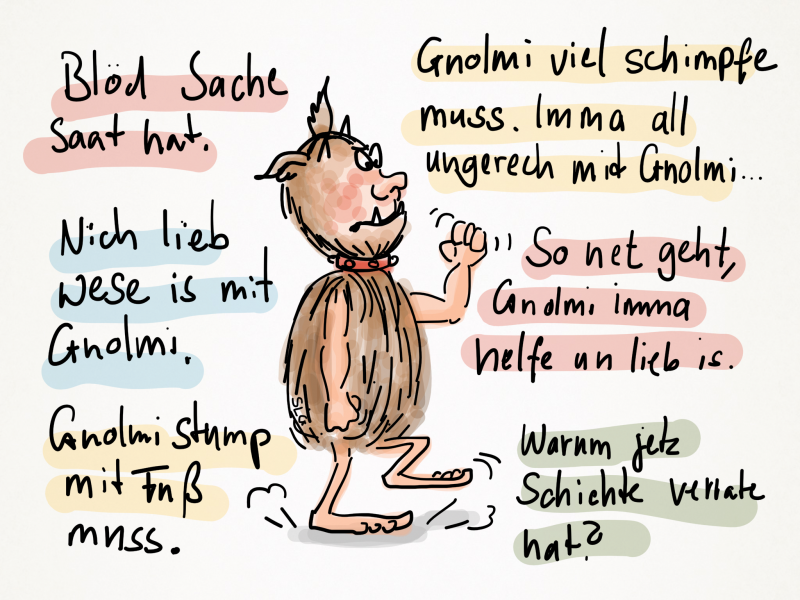 Blöd Sache
saat hat.
Nich lieb
wese is mit
Gnolmi.
Gnolmi stump
mit Fuß
muss.
Gnolmi viel schimpfe
muss. Imma all
ungerech mit Gnolmi...
So net geht,
Gnolmi imma
helfe un lieb is.
Warum jetz
Schichte verrate
hat?
SLG